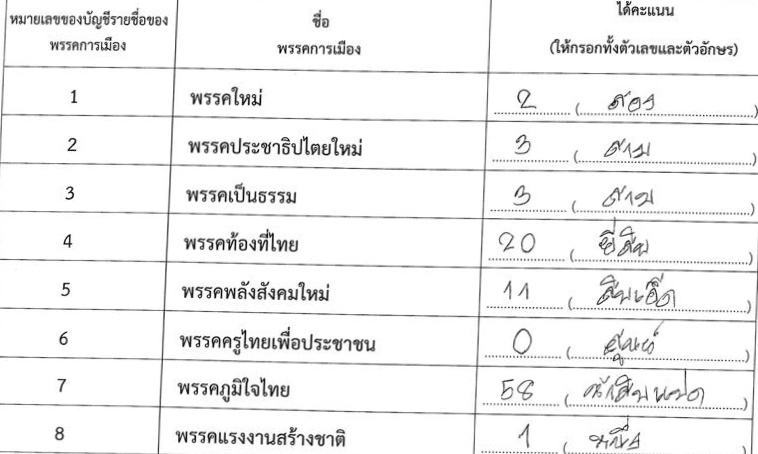 หมายเลขของบัญชีรายชื่อของ
พรรคการเมือง
ชื่อ
พรรคการเมือง
ได้คะแนน
(ให้กรอกทั้งตัวเลขและตัวอักษร)
1 พรรคใหม่ 2 (สอง)
2 พรรคประชาธิปไตยใหม่ 3 (สาม)
3 พรรคเป็นธรรม 3 (สาม)
4 พรรคท้องที่ไทย 20 (ยี่สิบ)
5 พรรคพลังสังคมใหม่ 11 (สิบเอ็ด)
6 พรรคครูไทยเพื่อประชาชน 0 (ศูนย์)
7 พรรคภูมิใจไทย 58 (ห้าสิบแปด)
8 พรรคแรงงานสร้างชาติ 1 (หนึ่ง)